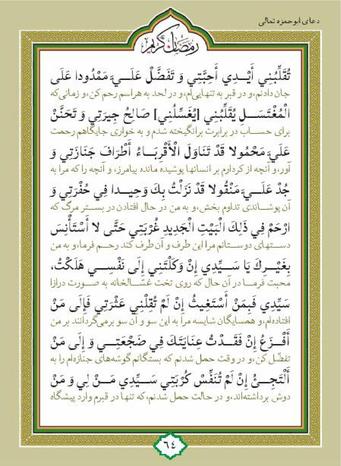 دعای ابوحمزه ثمالی
رمضان کریم
تُقَلِّبُنِي أَيْدِي أَحِبَّتِي وَ تَفَضَّلْ عَلَيَّ مَمْدُودا عَلَى
جان دادنم، و در قبر به تنهایی‌ام، و در لحد به هراسم رحم کن، و زمانی‌که
الْمُغْتَسَلِ يُقَلِّبُنِي [يُغَسِّلُنِي] صَالِحُ جِيرَتِي وَ تَحَنَّنْ
برای حساب در برابرت برانگیخته شدم و به خواری جایگاهم رحمت
عَلَيَّ مَحْمُولا قَدْ تَنَاوَلَ الْأَقْرِبَاءُ أَطْرَافَ جَنَازَتِي وَ
آور، و آنچه از کردارم بر انسانها پوشیده مانده بیامرز، و آنچه را که مرا به
جُدْ عَلَيَّ مَنْقُولا قَدْ نَزَلْتُ بِكَ وَحِيدا فِي حُفْرَتِي وَ
آن پوشاندی تداوم بخش، و به من در حال افتادن در بستر مرگ که
ارْحَمْ فِي ذَلِكَ الْبَيْتِ الْجَدِيدِ غُرْبَتِي حَتَّى لا أَسْتَأْنِسَ
دستهای دوستانم مرا این طرف و آن طرف کند رحم فرما، و به من
بِغَيْرِكَ يَا سَيِّدِي إِنْ وَكَلْتَنِي إِلَى نَفْسِي هَلَكْتُ،
محبت فرما در آن حال که روی تخت غسالخانه به صورت درازا
سَيِّدِي فَبِمَنْ أَسْتَغِيثُ إِنْ لَمْ تُقِلْنِي عَثْرَتِي فَإِلَى مَنْ
افتاده‌ام، و همسایگان شایسته مرا به این سو و آن سو برمی‌گردانند بر من
أَفْزَعُ إِنْ فَقَدْتُ عِنَايَتَكَ فِي ضَجْعَتِي وَ إِلَى مَنْ
تفضّل کن، و در وقت حمل شدنم که بستگانم گوشه‌های جنازه‌ام را به
أَلْتَجِئُ إِنْ لَمْ تُنَفِّسْ كُرْبَتِي سَيِّدِي مَنْ لِي وَ مَنْ
دوش برداشته‌اند، و در حالت حمل شدنم، که تنها در قبرم وارد پیشگاه
۶۴